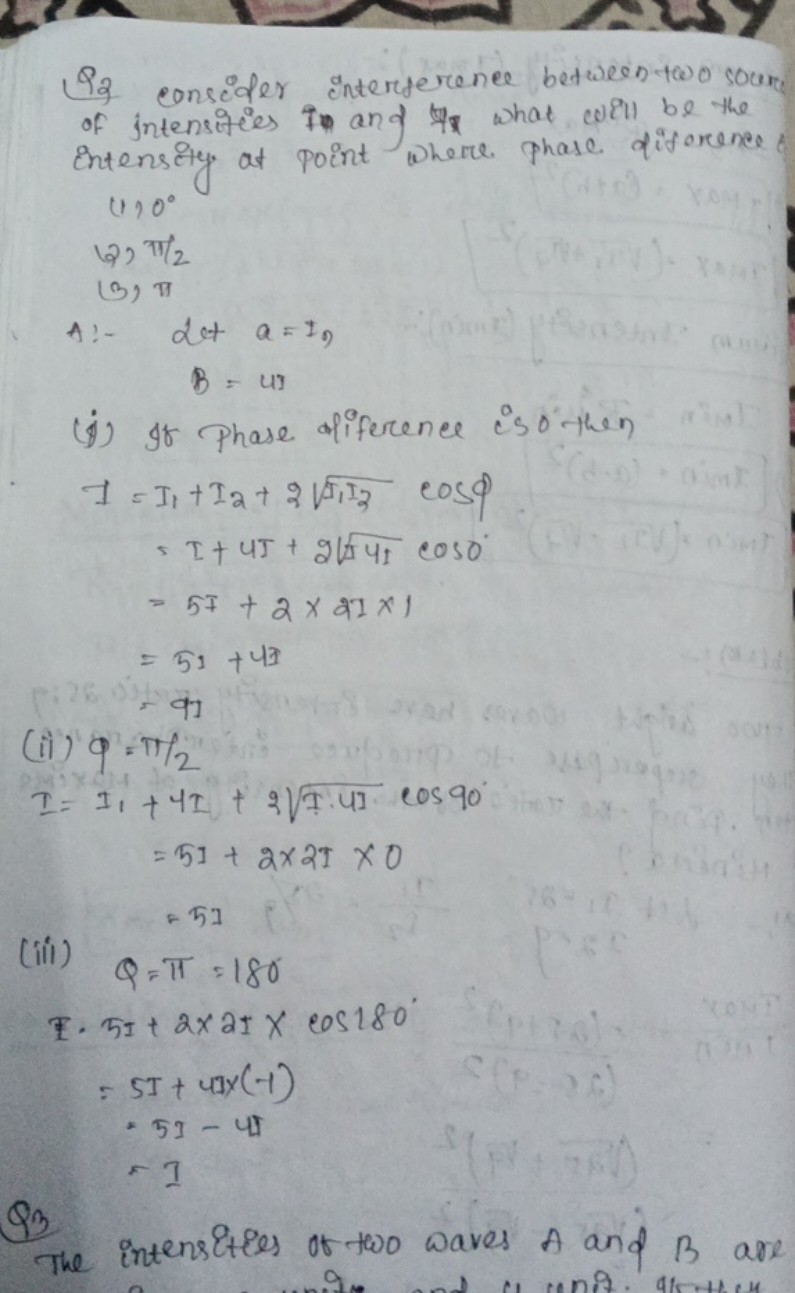 Q2 consider interference between two sourc
of intensities I and 4I what will be the
intensity at point where phase diference
(1) 0°
(2) π/2
(3) π
A:- Let a = I,
B = 4I
(i) If Phase diference is 0 then
I = I₁ + I₂ + 2√I₁I₂ cosφ
= I + 4I + 2√I 4I cos0°
= 5I + 2 × 2I × 1
= 5I + 4I
= 9I
(ii) φ = π/2
I = I₁ + 4I + 2√I.4I cos90°
= 5I + 2×2I × 0
= 5I
(iii)
φ = π = 180°
I = 5I + 2×2I × cos180°
= 5I + 4I×(-1)
= 5I - 4I
= I
Q3
The intensities of two waves A and B are
and 4 unit. If they